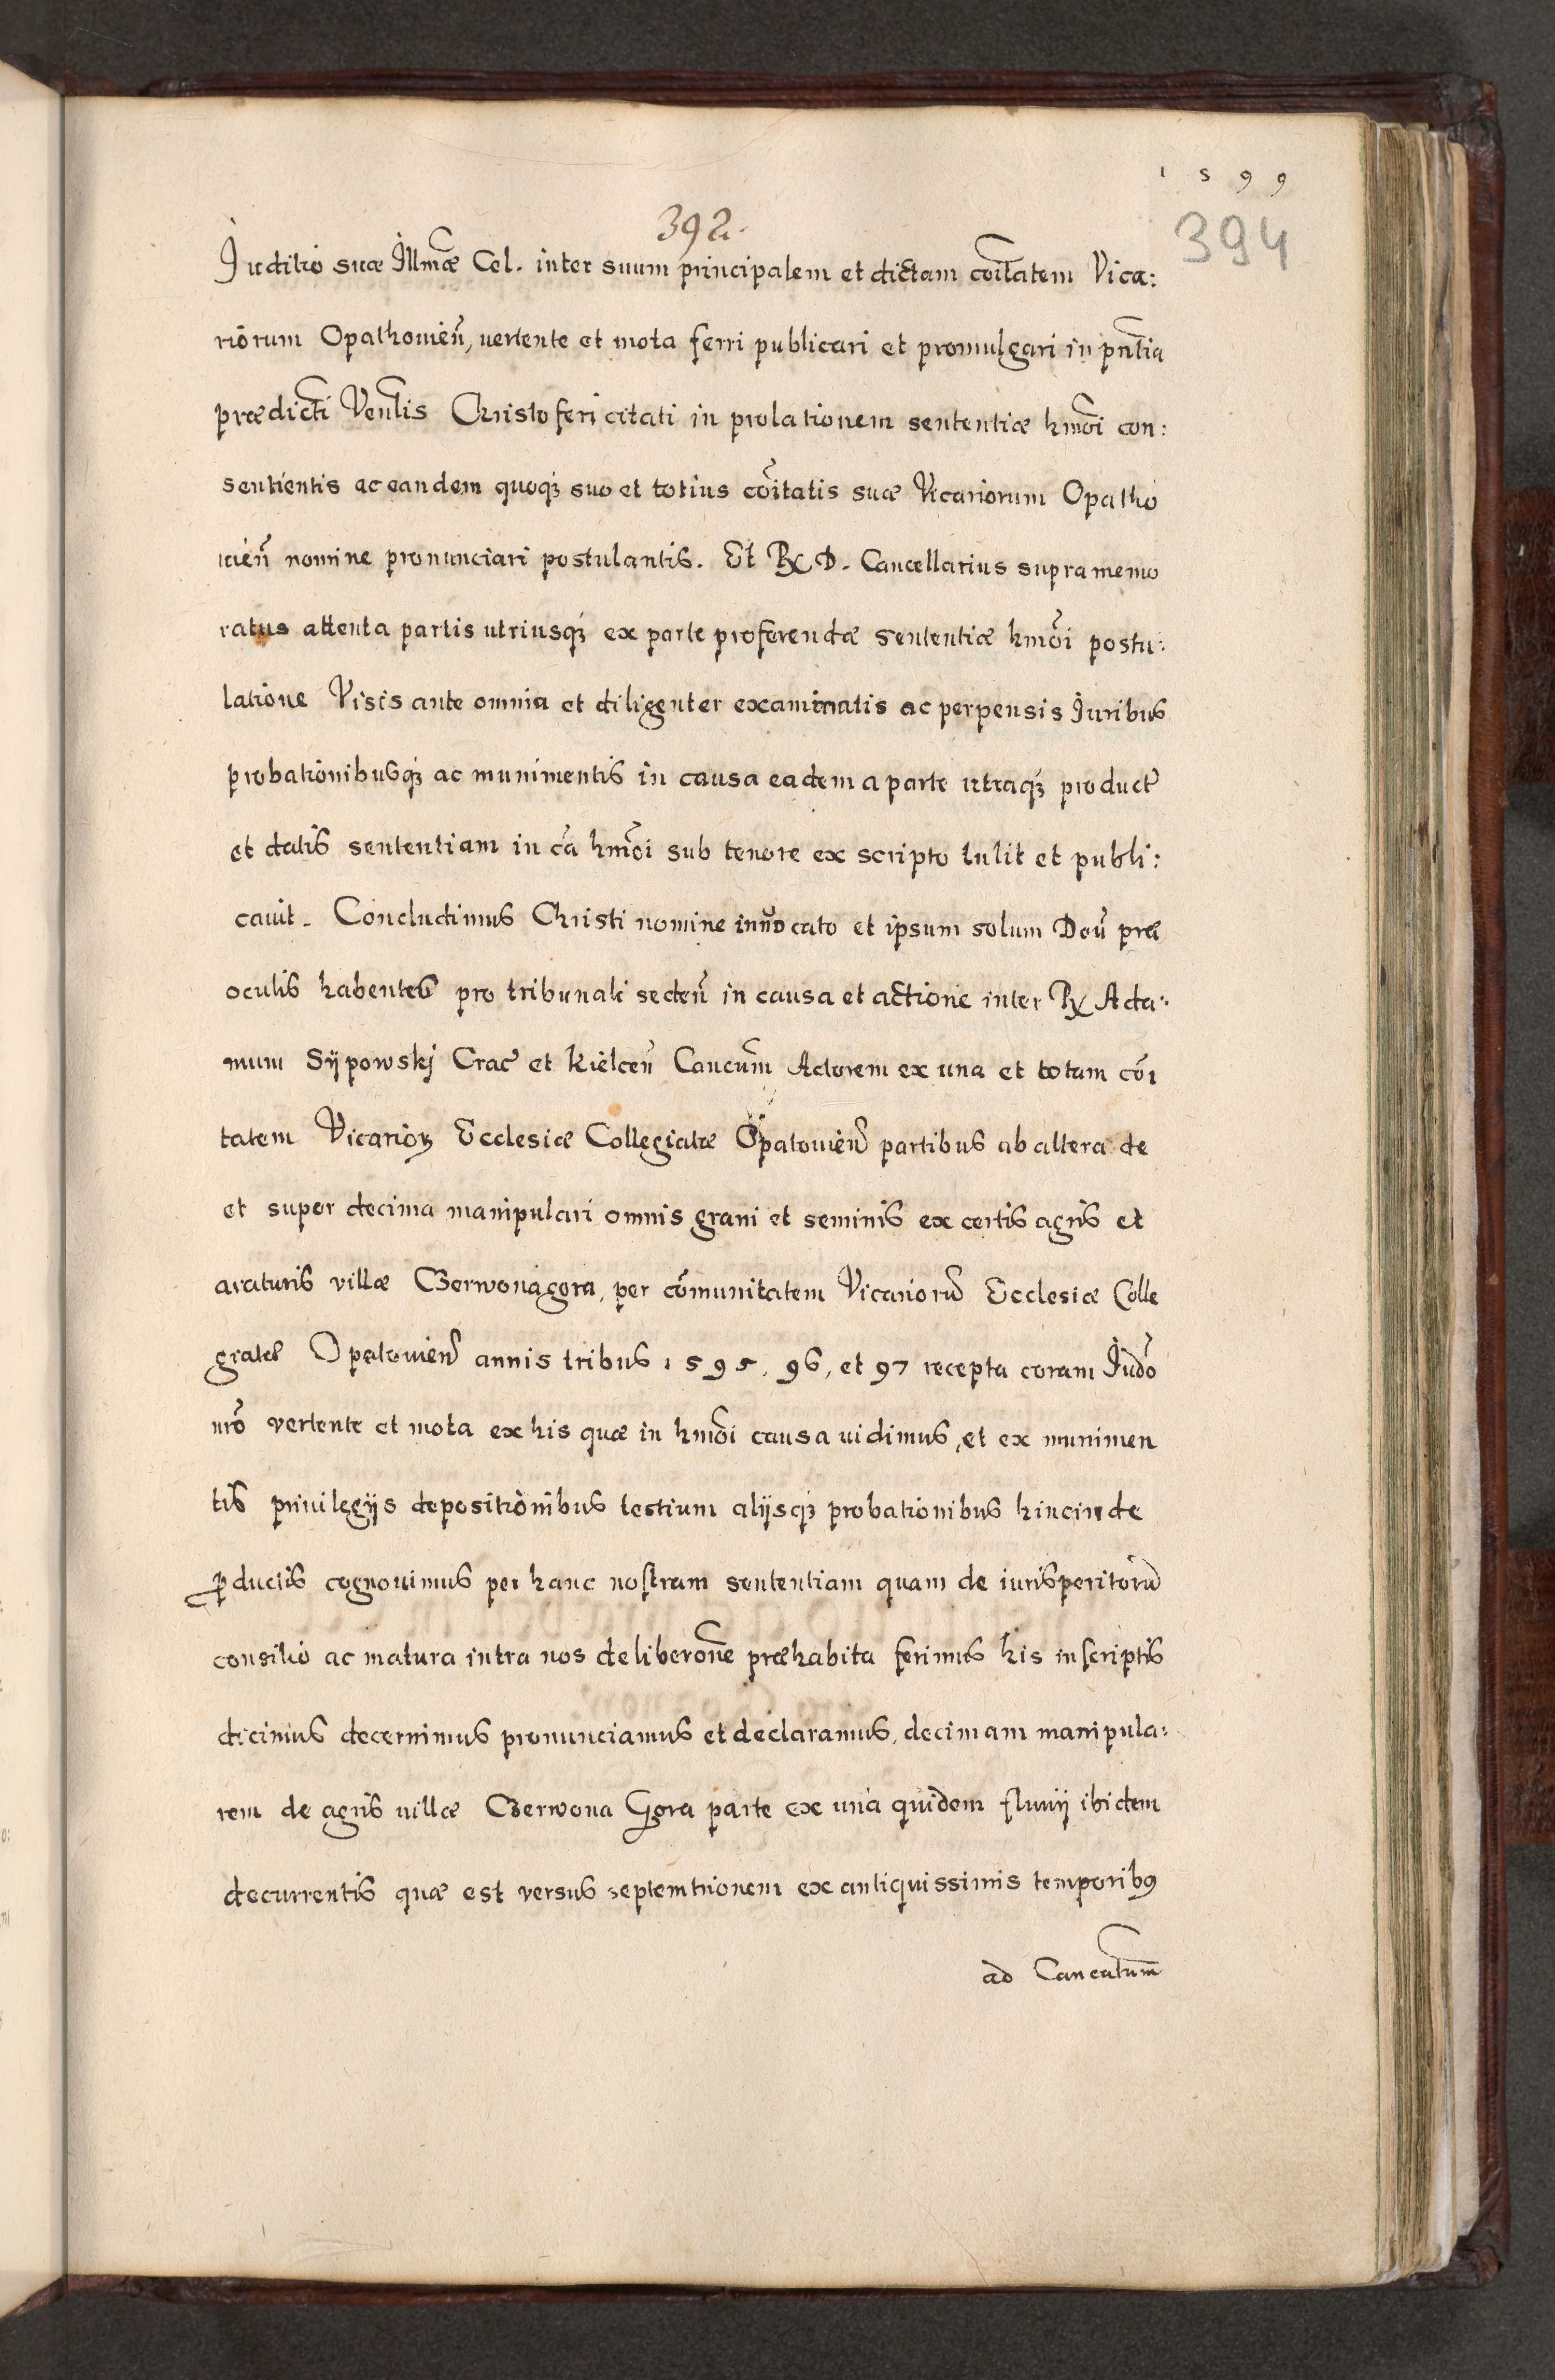 1599
392.
394
Juditio suæ Illmæ Cel. inter suum principalem et dictam coitatem Vica:
riorum Opathowieñ, vertente et mota ferri publicari et promulgari in pñtia
prædicti Venlis Christoferi citati in prolationem sententiæ hmõi con:
sentientis ac eandem quoqȝ suo et totius cõitatis suæ Vicariorum Opatho
wieñ nomine pronunciari postulantis. Et Rx D. Cancellarius supra memo
ratus attenta partis utriusqȝ ex parte proferendæ sententiæ hmõi postu:
latione Visis ante omnia et diligenter examinatis ac perpensis Juribus
probationibusqȝ ac munimentis in causa eadem a parte utraqȝ product
et datis sententiam in cã hmõi sub tenore ex scripto tulit et publi:
cavit. Concludimus Christi nomine invocato et ipsum solum Deũ præ
oculis habentes pro tribunali sedeñ in causa et actione inter Rx Ada:
mum Sÿpowskj Crac et Kielceñ Cancum Actorem ex una et totam cõi
tatem Vicarioꝝ Ecclesiæ Collegiatæ Opatowieñ partibus ab altera de
et super decima manipulari omnis grani et seminis ex certis agris et
araturis villæ Czerwonagora, per cõmunitatem Vicariorũ Ecclesiæ Colle
giatæ Opatowieñ annis tribus 1595, 96, et 97 recepta coram Judõ
nrõ vertente et mota ex his quæ in hmõi causa vidimus, et ex munimen
tis privilegijs depositionibus testium alijsqȝ probationibus hincinde
ꝓductis cognovimus per hanc nostram sententiam quam de iurisperitorũ
consilio ac matura intra nos deliberone præhabita ferimus his in scriptis
dicimus decernimus pronunciamus et declaramus, decimam manipula:
rem de agris villæ Czerwona Gora parte ex una quidem fluvij ibidem
decurrentis quæ est versus septemtrionem ex antiquissimis temporibꝰ
ad Cancatum